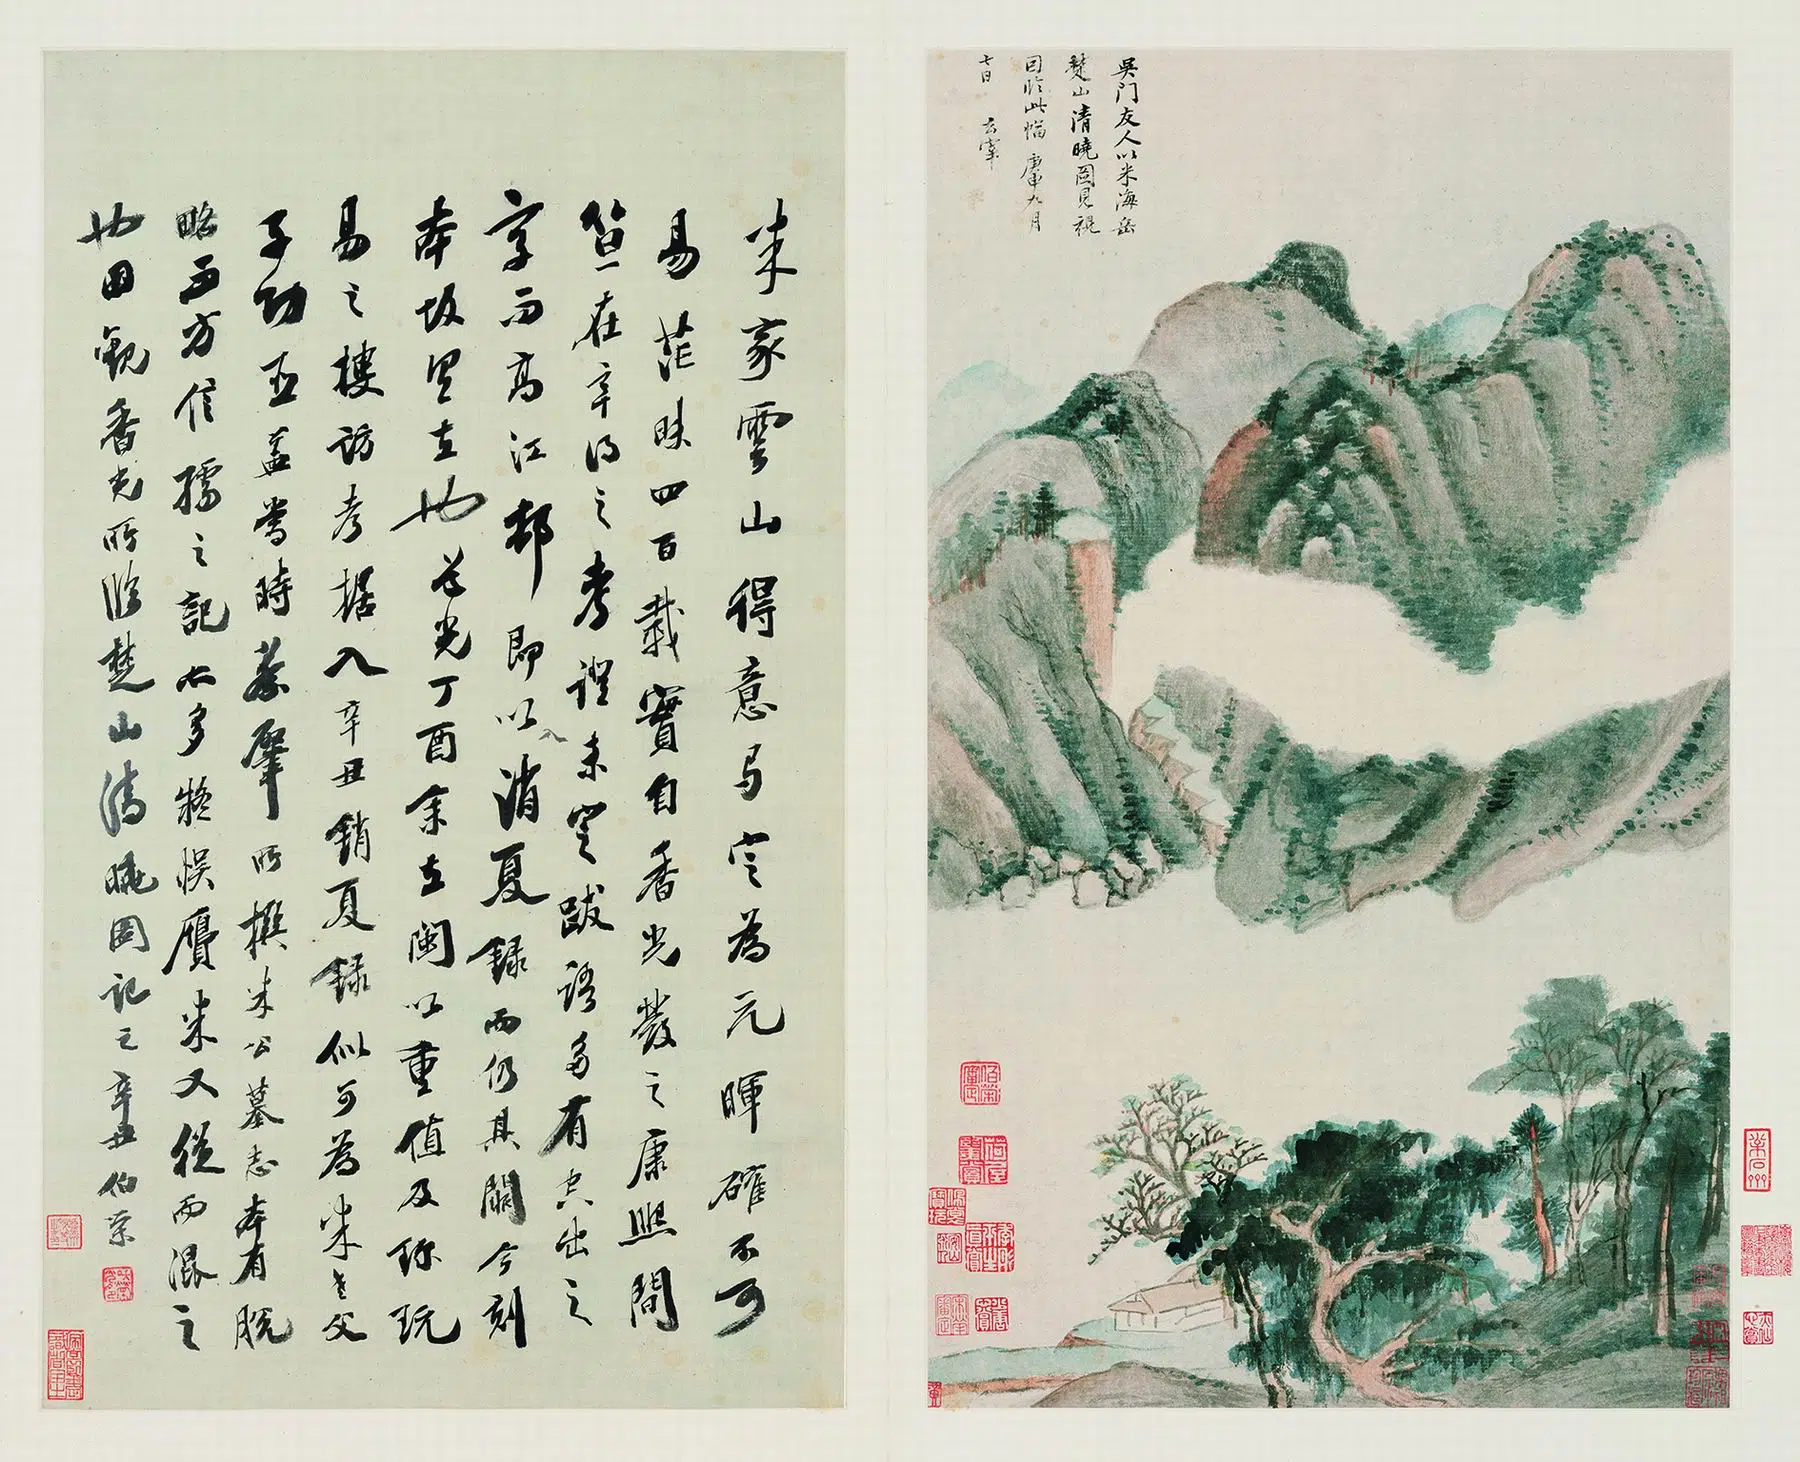 吳門友人以米海岳
楚山清曉圖見視
因臨此幅庚申九月
七日 玄宰
米家雲山得意定為元暉確不可
易茫昧四百載實自香光發之康熙間
笪在辛得之考證未定跋語多有出之
字而高江邨即以入消夏錄而仍其闕今刻
本也道光丁酉余在閩以重值及珎玩
易之樓訪考據入辛丑銷夏錄似可為米老父
子蓋當時蔡肇所撰米公墓志本有脫
略而方信孺之記亦多疑悞贋米又從而混之
也因觀香光所臨楚山清曉圖記之辛丑伯榮